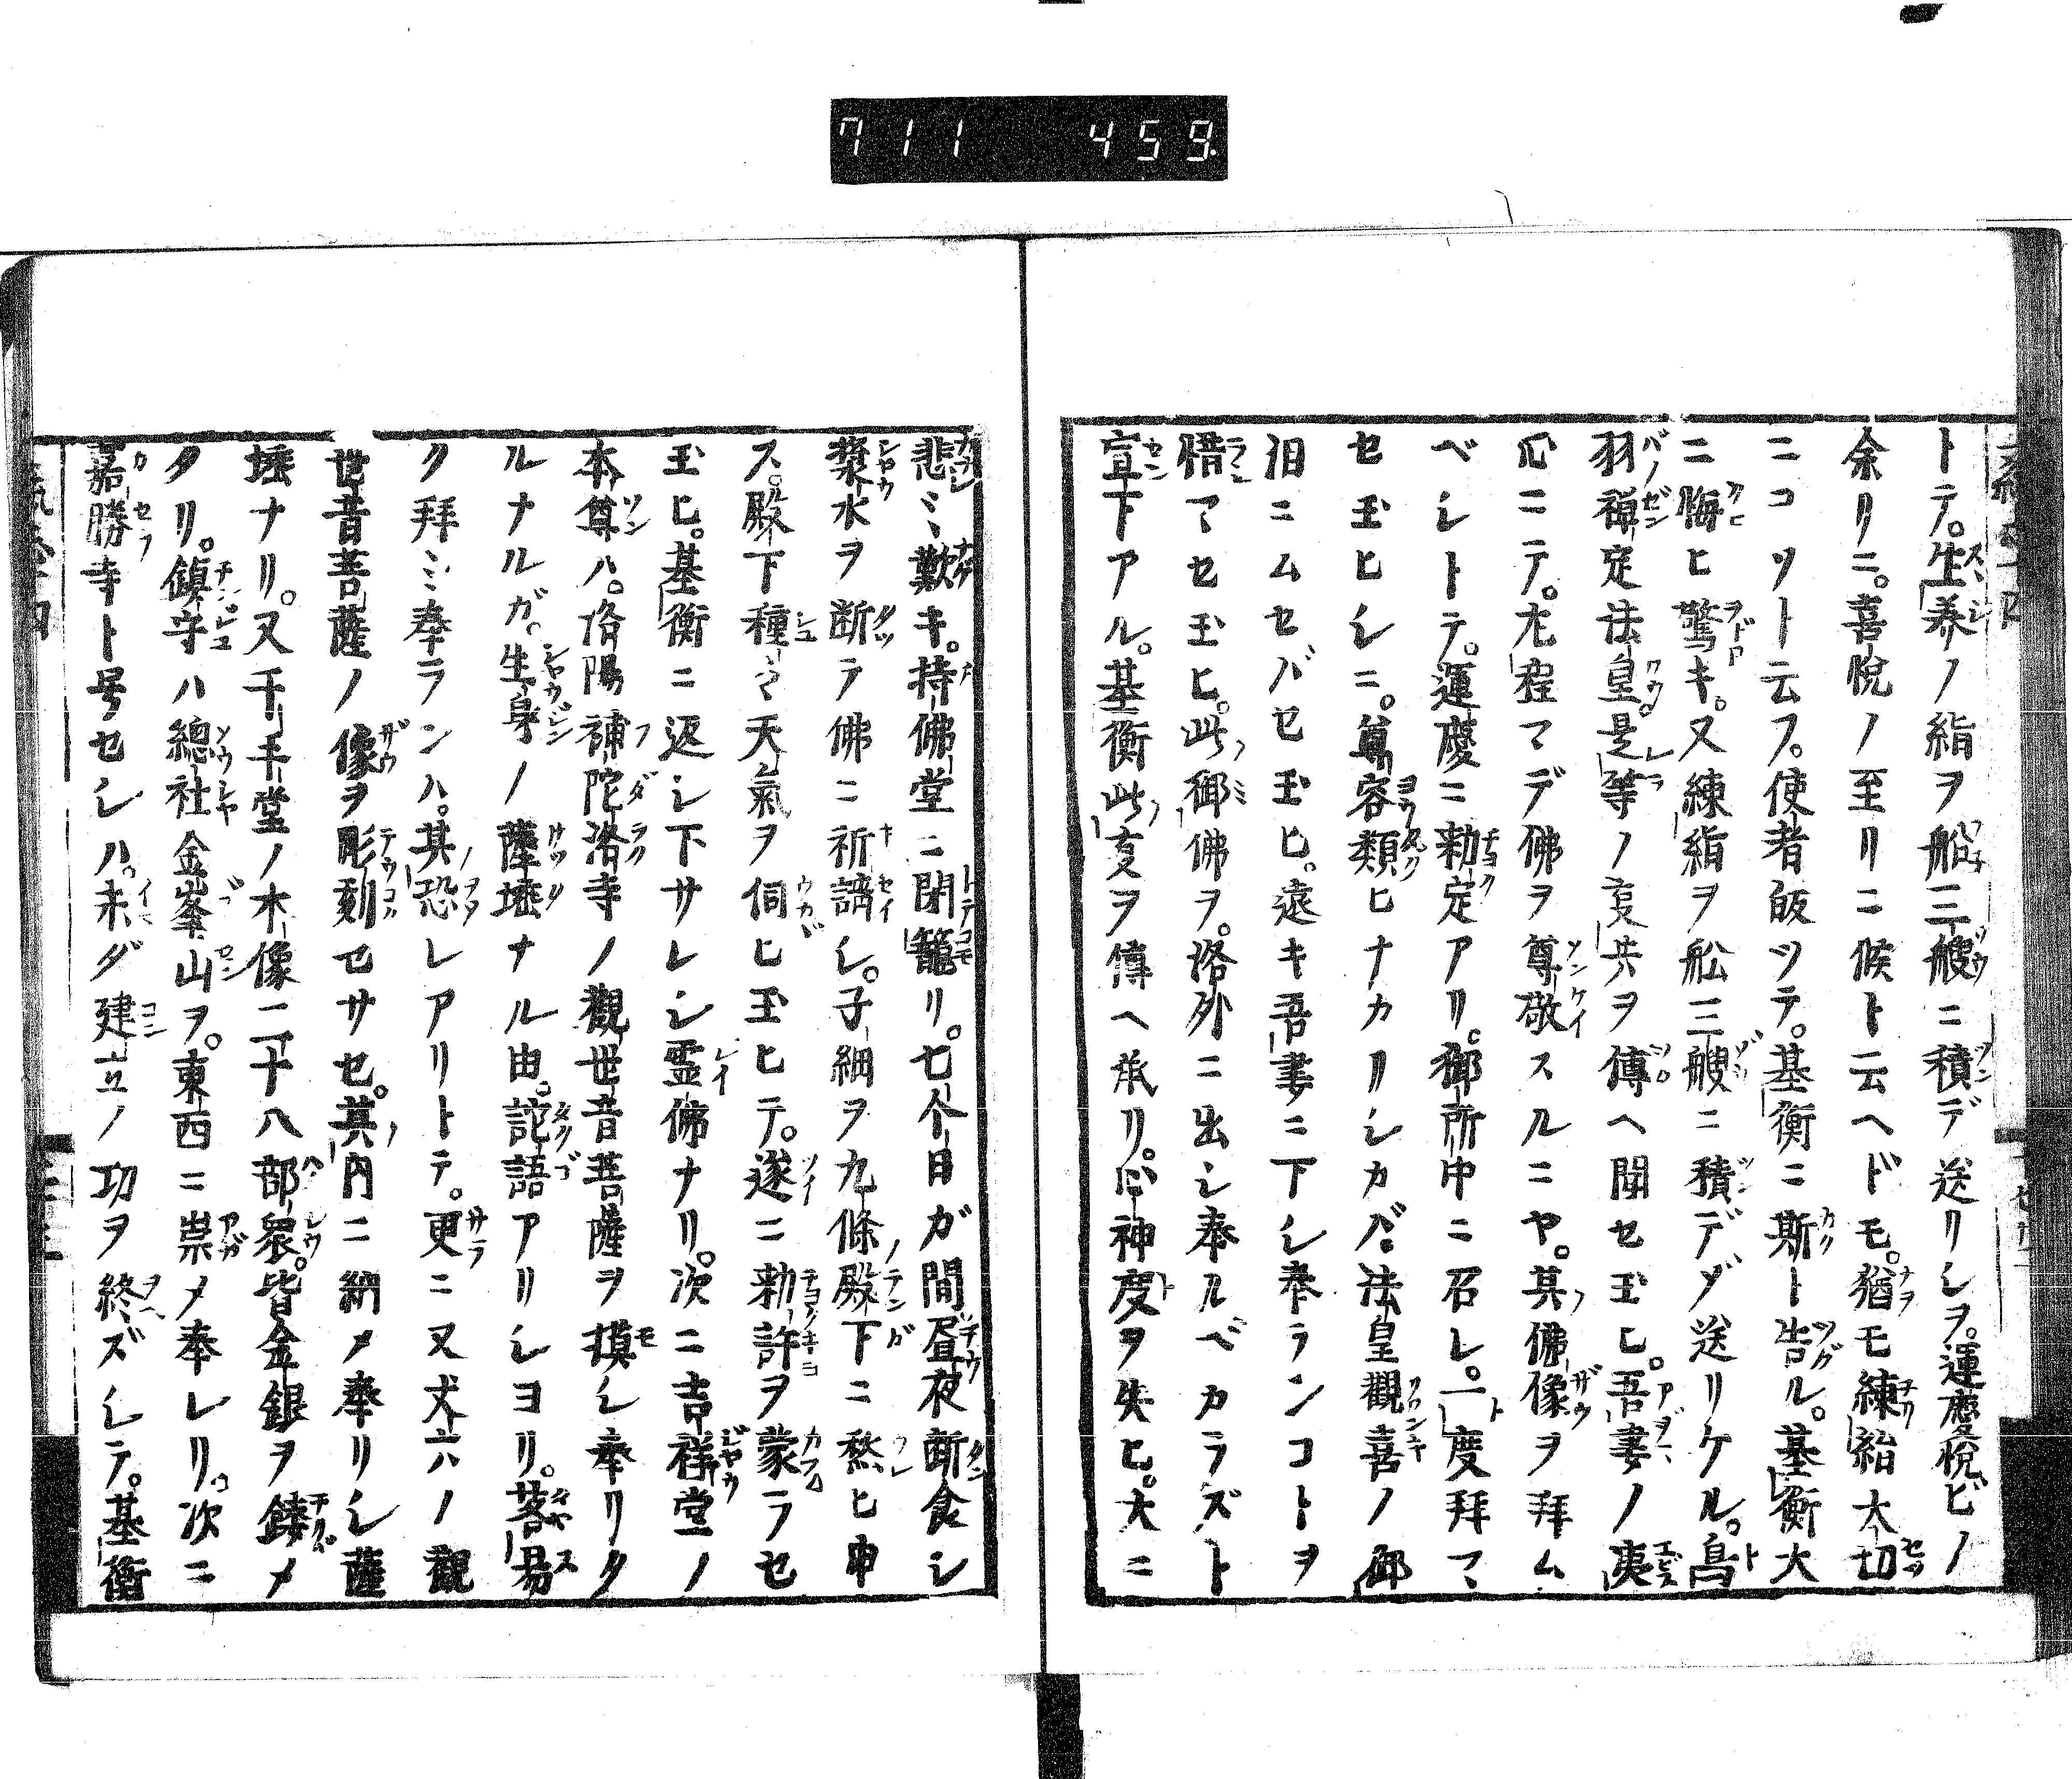 711 459
トテ。生養ノ絹ヲ船三艘ニ積デ送リシヲ。運慶悅ビノ
余リニ。喜悅ノ至リニ候ト云ヘドモ。猶モ練絹大切
ニコソト云フ。使者皈ツテ。基衡ニ斯ト告ル。基衡大
ニ悔ヒ驚キ。又練絹ヲ舩三艘ニ積デゾ送リケル。鳥
羽禅定法皇。是等ノ支共ヲ傳ヘ聞セ玉ヒ。吾妻ノ夷
心ニテ。尤程マデ佛ヲ尊敬スルニヤ。其佛像ヲ拜ム
ベシトテ。運慶ニ勅定アリ。御所中ニ召レ。一度拜マ
セ玉ヒシニ。尊容類ヒナカリシカバ。法皇觀喜ノ御
泪ニムセバセ玉ヒ。遠キ吾妻ニ下シ奉ランコトヲ
惜マセ玉ヒ。此御佛ヲ。洛外ニ出シ奉ルベカラズト
宣下アル。基衡此支ヲ傳ヘ承リ。心神度ヲ失ヒ。大ニ
悲ミ歎キ。持佛堂ニ閉籠リ。七个日ガ間昼夜断食シ
漿水ヲ断テ佛ニ祈請シ。子細ヲ九條殿下ニ愁ヒ申
ス。殿下種々天氣ヲ伺ヒ玉ヒテ。遂ニ勅許ヲ蒙ラセ
玉ヒ。基衡ニ返シ下サレシ霊佛ナリ。次ニ吉祥堂ノ
本尊ハ。洛陽補陀洛寺ノ觀世音菩薩ヲ摸シ奉リタ
ルナルガ。生身ノ薩埵ナル由。詑語アリシヨリ。落易
ク拜ミ奉ランハ。其恐レアリトテ。更ニ又丈六ノ觀
世音菩薩ノ像ヲ彫刻セサセ。其内ニ納メ奉リシ薩
埵ナリ。又千手堂ノ木像二十八部衆。皆金銀ヲ鏤メ
タリ。鎮守ハ總社金峯山ヲ。東西ニ崇メ奉レリ。次ニ
嘉勝寺ト号セシハ。未ダ建立ノ功ヲ終ズシテ。基衡